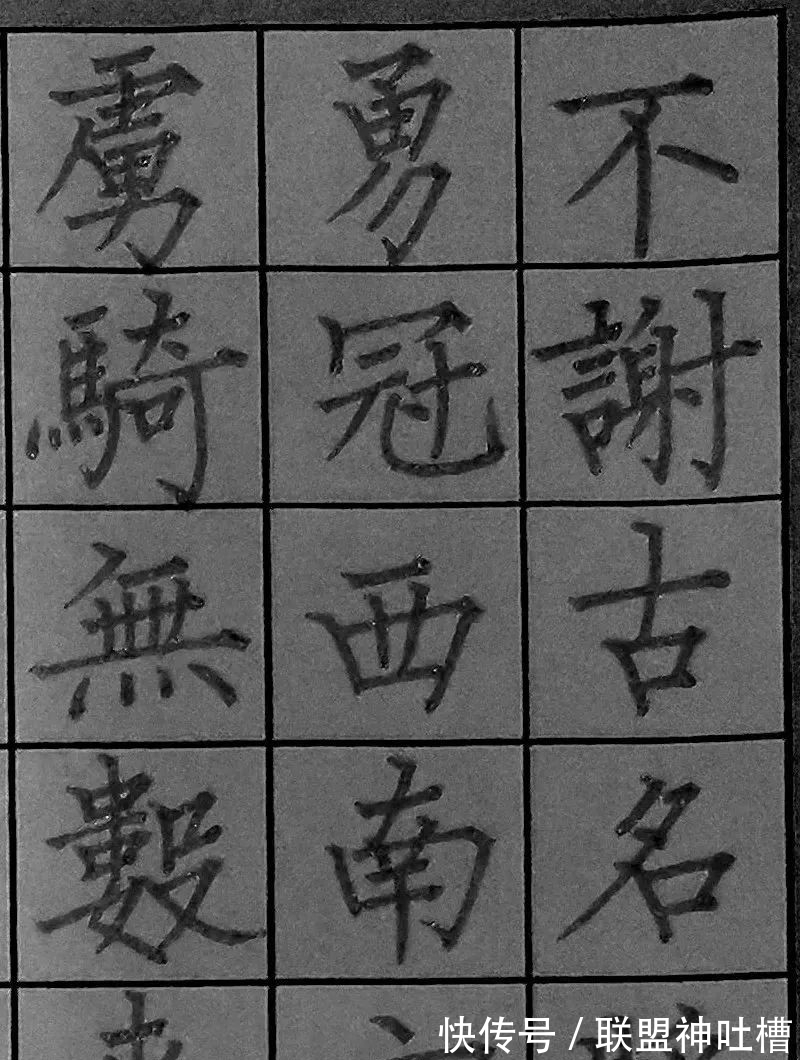 不謝古名
勇冠西南
虜騎無數
快传号 / 联盟神吐槽